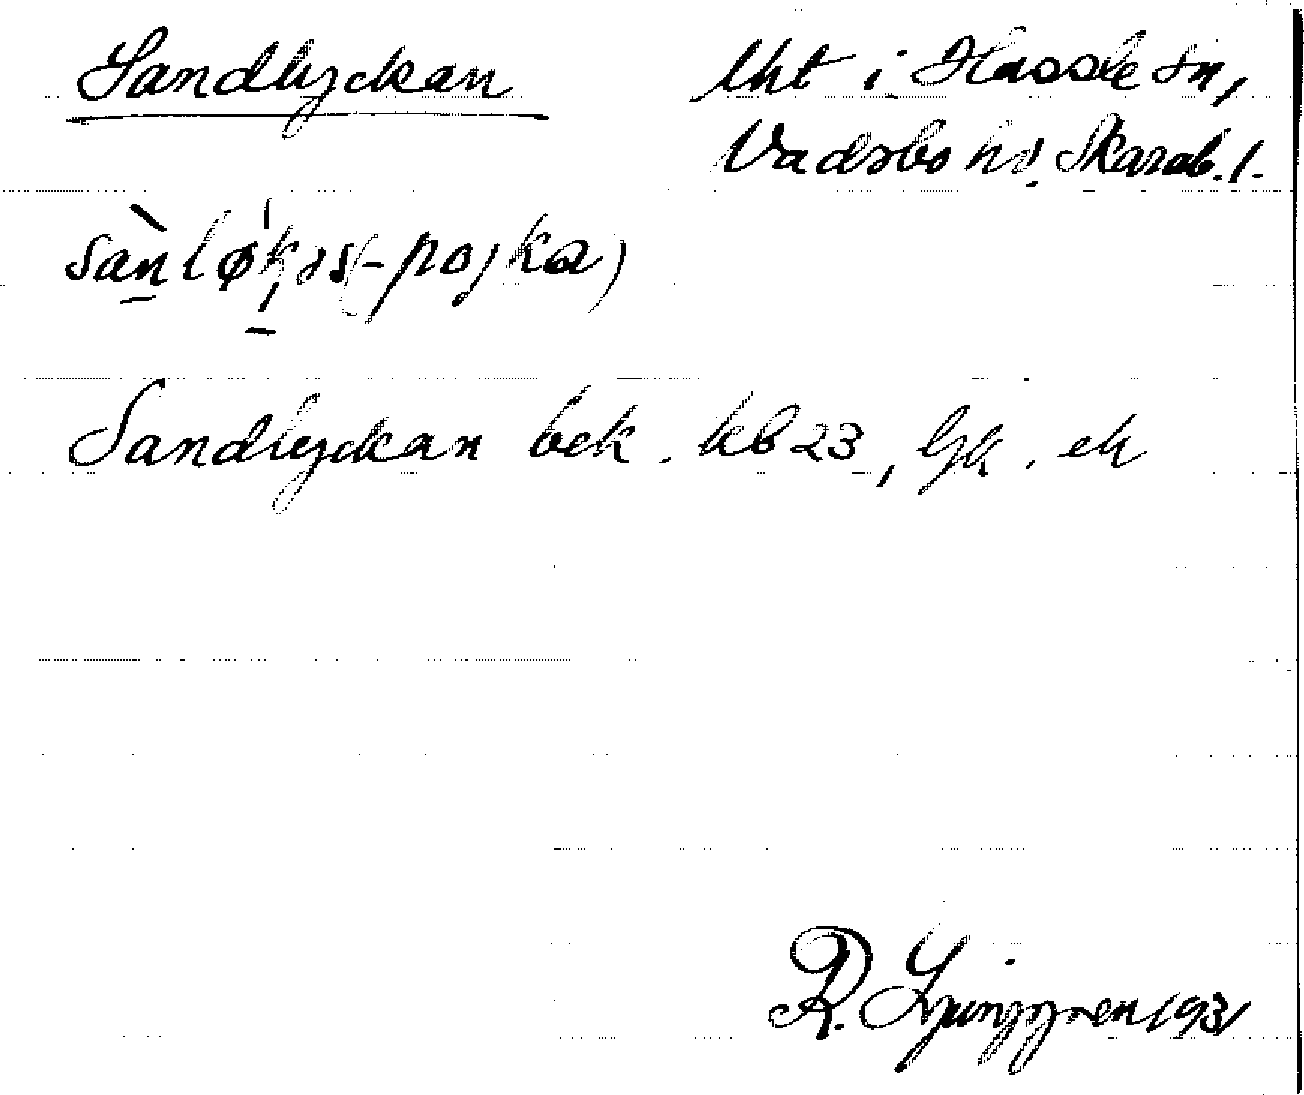 Sandlyckan
Uht i Hassle sn,
Vadsbo hd. Skarab. l.
sànløkas (-pojka)
Sandlyckan bek. kb 23, Gk. ek
R. Ljunggren 1931